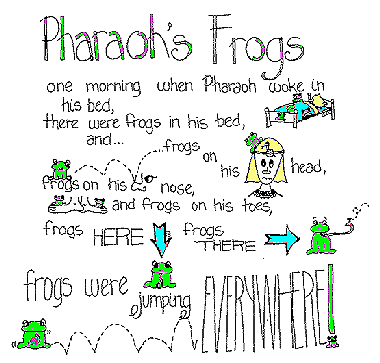 Pharaoh's Frogs
one morning when Pharaoh woke in
his bed,
there were frogs in his bed,
and... ...frogs
on his head,
frogs on his nose,
and frogs on his toes,
frogs HERE frogs THERE
frogs were jumping EVERYWHERE!